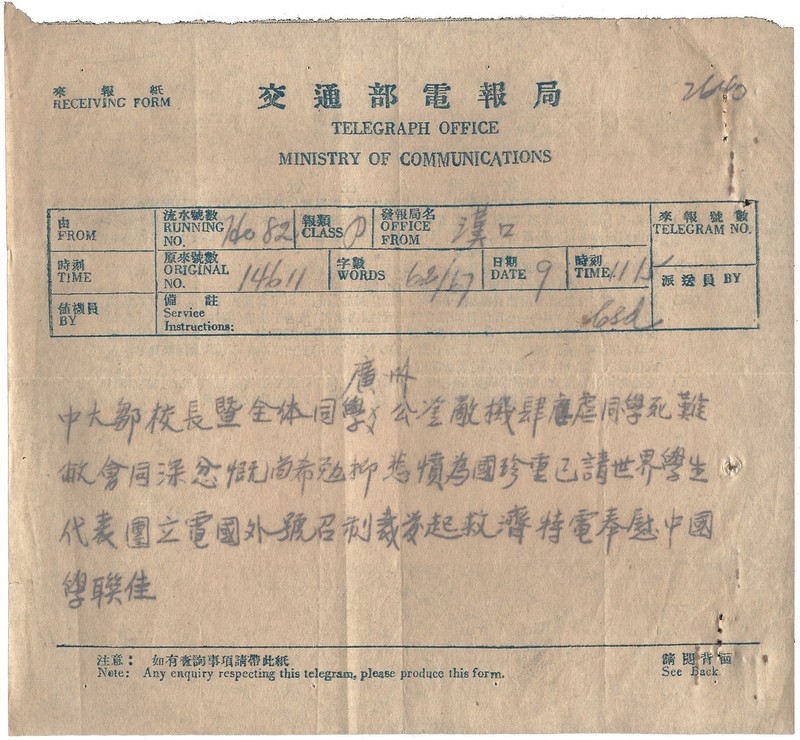 來報紙
RECEIVING FORM
交通部電報局
TELEGRAPH OFFICE
MINISTRY OF COMMUNICATIONS
2640
由
FROM
流水號數
RUNNING NO.
82
報類
CLASS
發報局名
OFFICE FROM
漢口
來報號數
TELEGRAM NO.
時刻
TIME
原來號數
ORIGINAL NO.
14611
字數
WORDS
62/57
日期
DATE
9
時刻
TIME
1115
派送員 BY
值機員
BY
備註
Service Instructions:
廣州
中大鄒校長暨全体同學 公鉴敵機肆虐同學死難
敝會同深忿慨尚希勉抑悲憤為國珍重已請世界學生
代表團立電國外號召制裁發起救濟特電奉慰中國
學聯佳
注意: 如有查詢事項請帶此紙
Note: Any enquiry respecting this telegram, please produce this form.
請閱背面
See Back